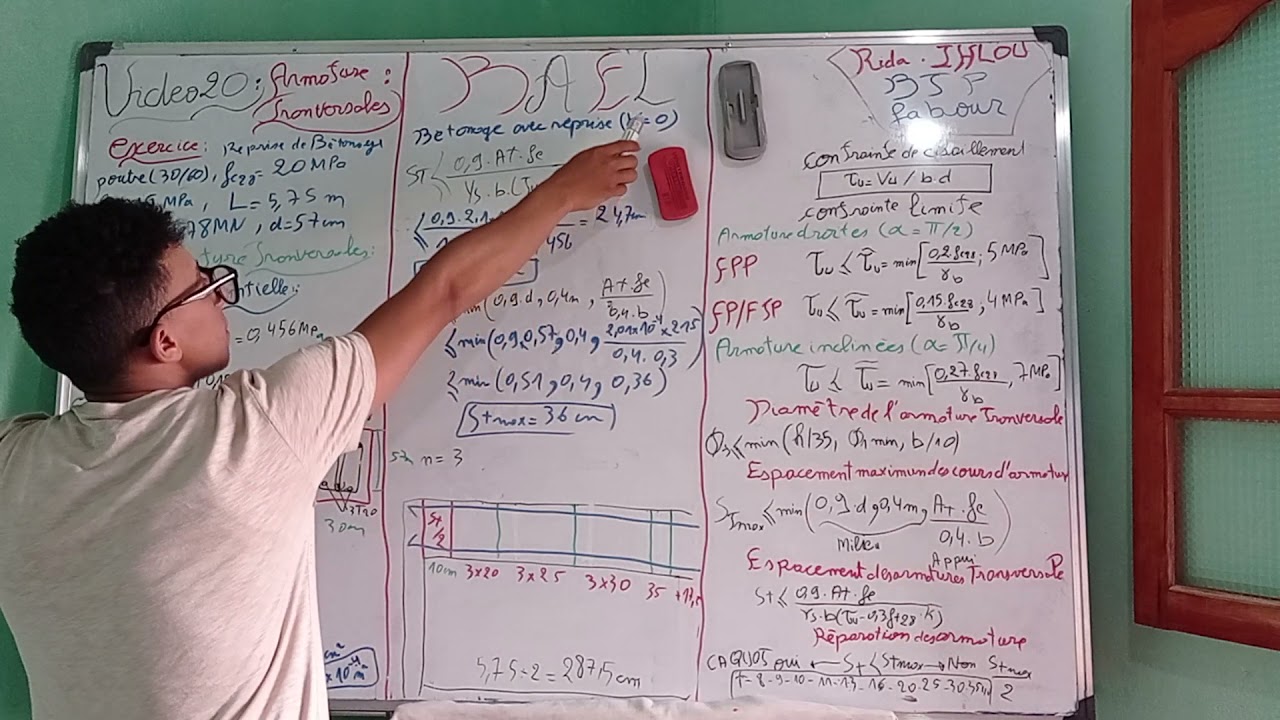 Video 20: Armature:
Transversales
exercice: Reprise de Bétonage
poutre (30/60), fc28 = 20 MPa
MPa, L = 5,75 m
78MN, d=57cm
Transversales:
= 0,456 MPa
3T20
30cm
BAEL
Betonage avec reprise (K=0)
St ≤ 0,9.At.fe
= 24,7cm
456
min(0,9.d, 0,4m, At.fe / 0,4.b)
≤ min(0,9.0,57, 0,4, 2,01x10⁻⁴ x 215 / 0,4. 0,3)
≤ min (0,51, 0,4, 0,36)
Stmax = 36 cm
n = 3
St/2
10cm 3x20 3x25 3x30 35
5,75÷2 = 287,5cm
Rida. IHLOU
BTP
fabour
contrainte de cisaillement
τu = Vu / b.d
contrainte limite
Armature droites (α = π/2)
FPP τu ≤ τ̄u = min[0,2.fc28/γb ; 5 MPa]
FP/FTP τu ≤ τ̄u = min[0,15.fc28/γb , 4 MPa]
Armature inclinées (α = π/4)
τu ≤ τ̄u = min[0,27.fc28/γb , 7 MPa]
Diamètre de l'armature Tronversole
min (h/35, Øl min, b/10)
Espacement maximun des cours d'armatur
STmax ≤ min(0,9.d, 0,4m, At.fe / 0,4.b)
Milieu
Appui
Espacement des armatures Transversale
St ≤ 0,9.At.fe / γs.b(τu-0,3ft28.K)
Réparation des armature
CAQUOT oui ← St ≤ Stmax → Non Stmax/2
7-8-9-10-11-13-16-20-25-30-35